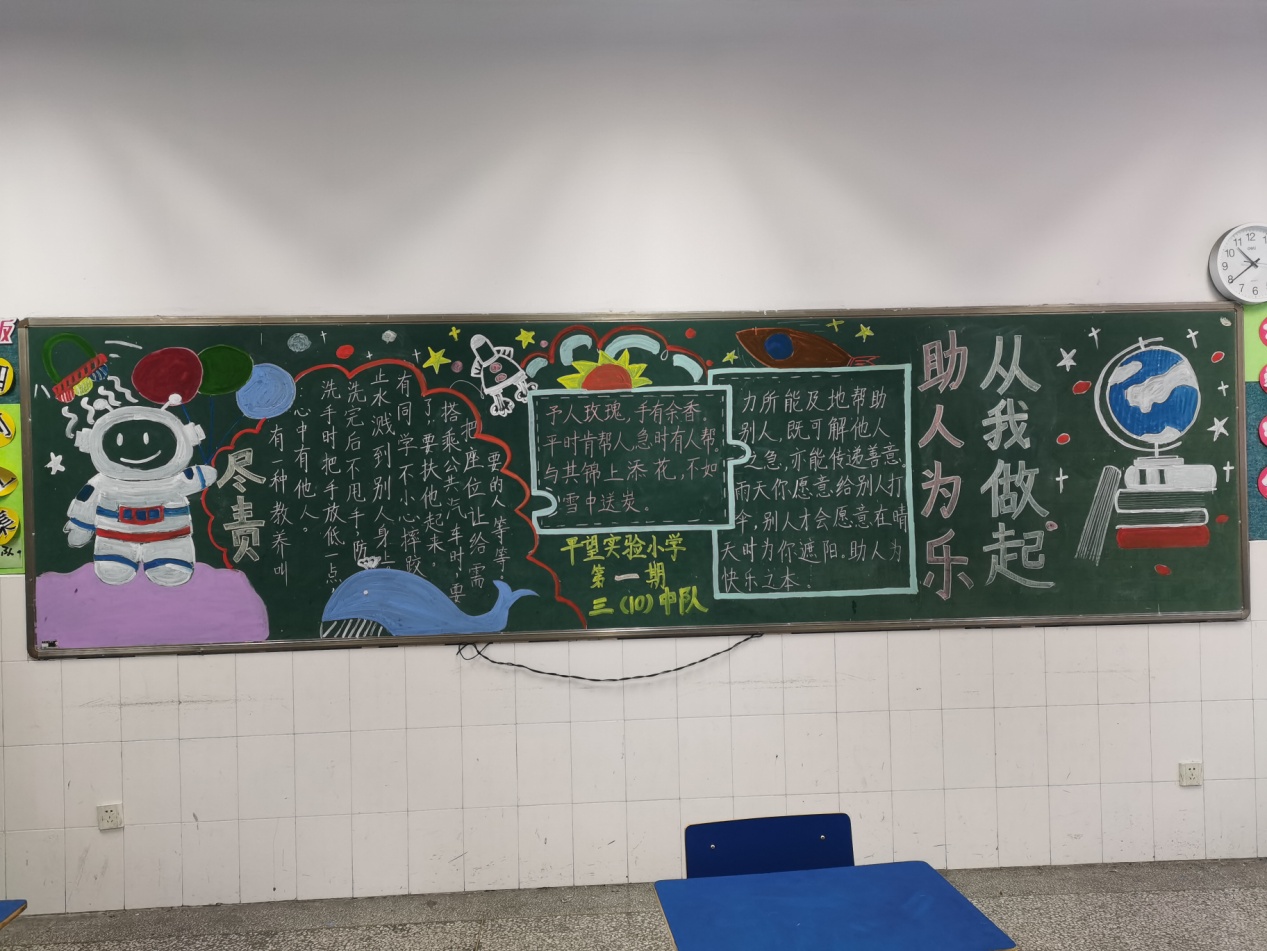 尽责
有一种教养叫
心中有他人。
洗手时把手放低一点,
洗完后不甩手,
止水溅到别人身上
有同学不小心摔跤
了,要扶他起来,
搭乘公共汽车时,要
把座位让给需
要的人等等
予人玫瑰,手有余香。
平时肯帮人,急时有人帮。
与其锦上添花,不如
雪中送炭。
平望实验小学
第一期
三(10)中队
力所能及地帮助
别人,既可解他人
之急,亦能传递善意
雨天你愿意给别人打
伞,别人才会愿意在晴
天时为你遮阳。助人为
快乐之本。
助人为乐
从我做起